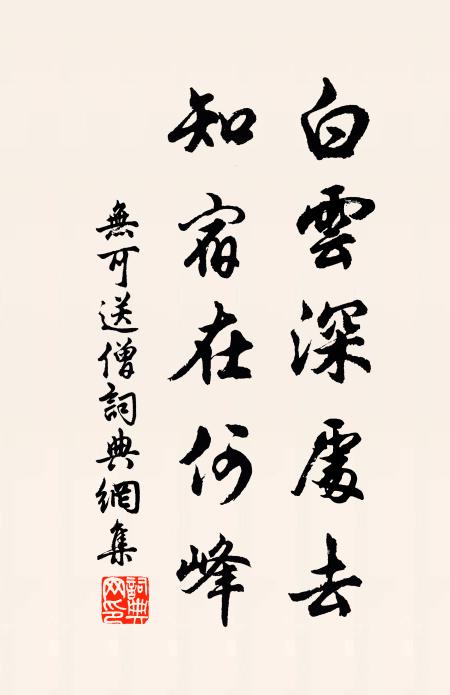 白雲深處去
知宿在何峰
無可送僧詞典網集
詞典網印